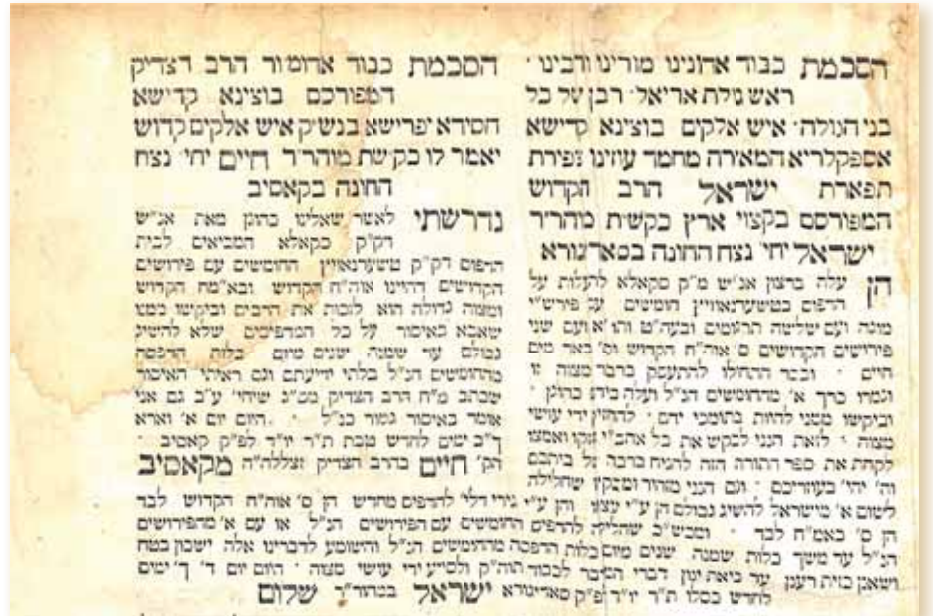 הסכמת כבוד אדונינו מורינו ורבינו ·
ראש גולת אריאל · רבן של כל
בני הגולה · איש אלקים בוצינא קדישא
אספקלריא המאירה מחמד עוזינו צפירת
תפארת ישראל הרב הקדוש
המפורסם בקצוי ארץ בקשת מוהר״ר
ישראל יחי׳ נצח החונה בסאדגורא
הן עלה ברצון אנ״ש מ״ק סקאלא להעלות על
הדפוס בטשערנאוויץ חומשים עם פירש״י
מוגה ועם שלשה תרגומים ובעה״ט ותו״א ועם שני
פירושים הקדושים ס׳ אוה״ח הקדוש וס׳ באר מים
חיים · וכבר התחילו להתעסק בדבר מצוה זו
וגמרו כרך א׳ מהחומשים הנ״ל ועלה בידם כהוגן ·
וביקשו ממני להיות בתומכי ידם · להחזיק ידי עושי
מצוה · לזאת הנני לבקש את כל אחב״י חזקו ואמצו
לקחת את ספר התורה הזה להניח ברכה על ביתכם
וה׳ יהי׳ בעוזריכם · וגם הנני מזהיר ומבקש שחלילה
לשום א׳ מישראל להשיג גבולם הן ע״י עצמו והן ע״י גירי דלי׳ להדפיס מחדש הן ס׳ אוה״ח הקדוש לבד
הן ס׳ באמ״ח לבד · ומכש״כ שחלילה להדפיס החומשים עם הפירושים הנ״ל או עם א׳ מהפירושים
הנ״ל עד משך כלות שמנה שנים מיום כלות הדפסה מהחומשים הנ״ל והשומע לדברינו אלה ישכון בטח
ושאנן כזית רענן עד ביאת ינון דברי המדבר לכבוד תוה״ק ולסייע ידי עושי מצוה · היום יום ד׳ ך׳ ימים
לחדש כסלו ת״ר יו״ד לפ״ק סאדיגורא ישראל במהור״ר שלום
הסכמת כבוד אדומו״ר הרב הצדיק
המפורסם בוצינא קדישא
חסידא ופרישא בנש״ק איש אלקים קדוש
יאמר לו בקשת מוהר״ר חיים יחי׳ נצח
החונה בקאסיב
נדרשתי לאשר שאלינו כהוגן מאת אנ״ש
דק״ק סקאלא המביאים לבית
הדפוס דק״ק טשערנאוויץ החומשים עם פירושים
הקדושים דהיינו אוה״ח הקדוש ובא״מח הקדוש
ומצוה גדולה הוא לזכות את הרבים וביקשו ממני
שאבא באיסור על כל המדפיסים שלא להשיג
גבולם עד שמנה שנים מיום כלות הדפסה
מהחומשים הנ״ל בלתי ידיעתם וגם ראיתי האיסור
שכתב מ״ח הרב הצדיק שיחי׳ ע״כ גם אני
אומר באיסור גמור כנ״ל · היום יום א׳ וארא
ך״ב ימים לחדש טבת ת״ר יו״ד לפ״ק קאסיב ·
הק׳ חיים בהרב הצדיק זצללה״ה מקאסיב